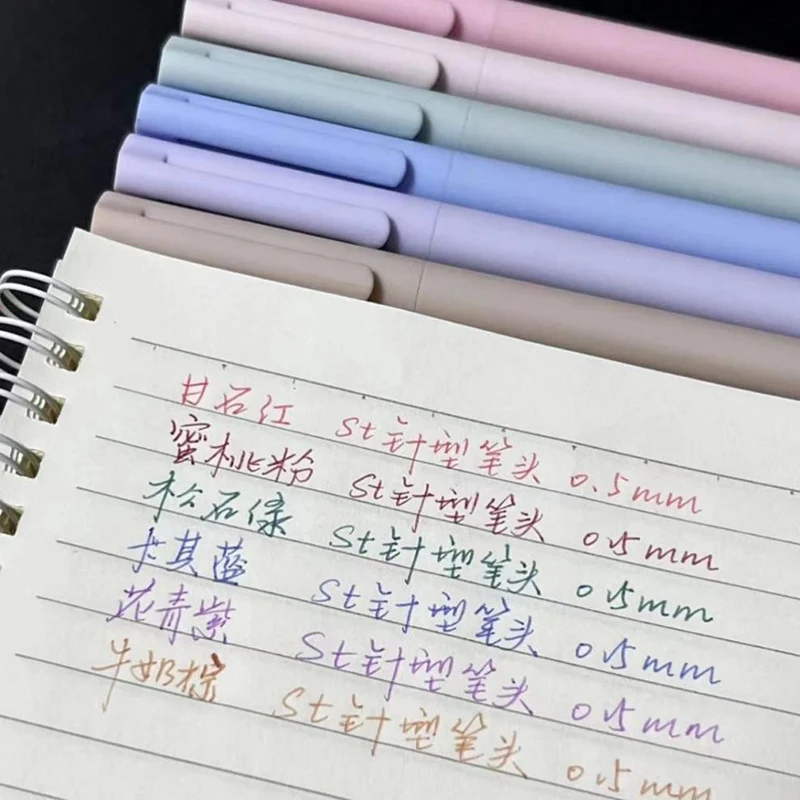 甘石红 St针型笔头 0.5mm
蜜桃粉 St针型笔头 0.5mm
松石绿 St针型笔头 0.5mm
卡其蓝 St针型笔头 0.5mm
花青紫 St针型笔头 0.5mm
牛奶棕 St针型笔头 0.5mm